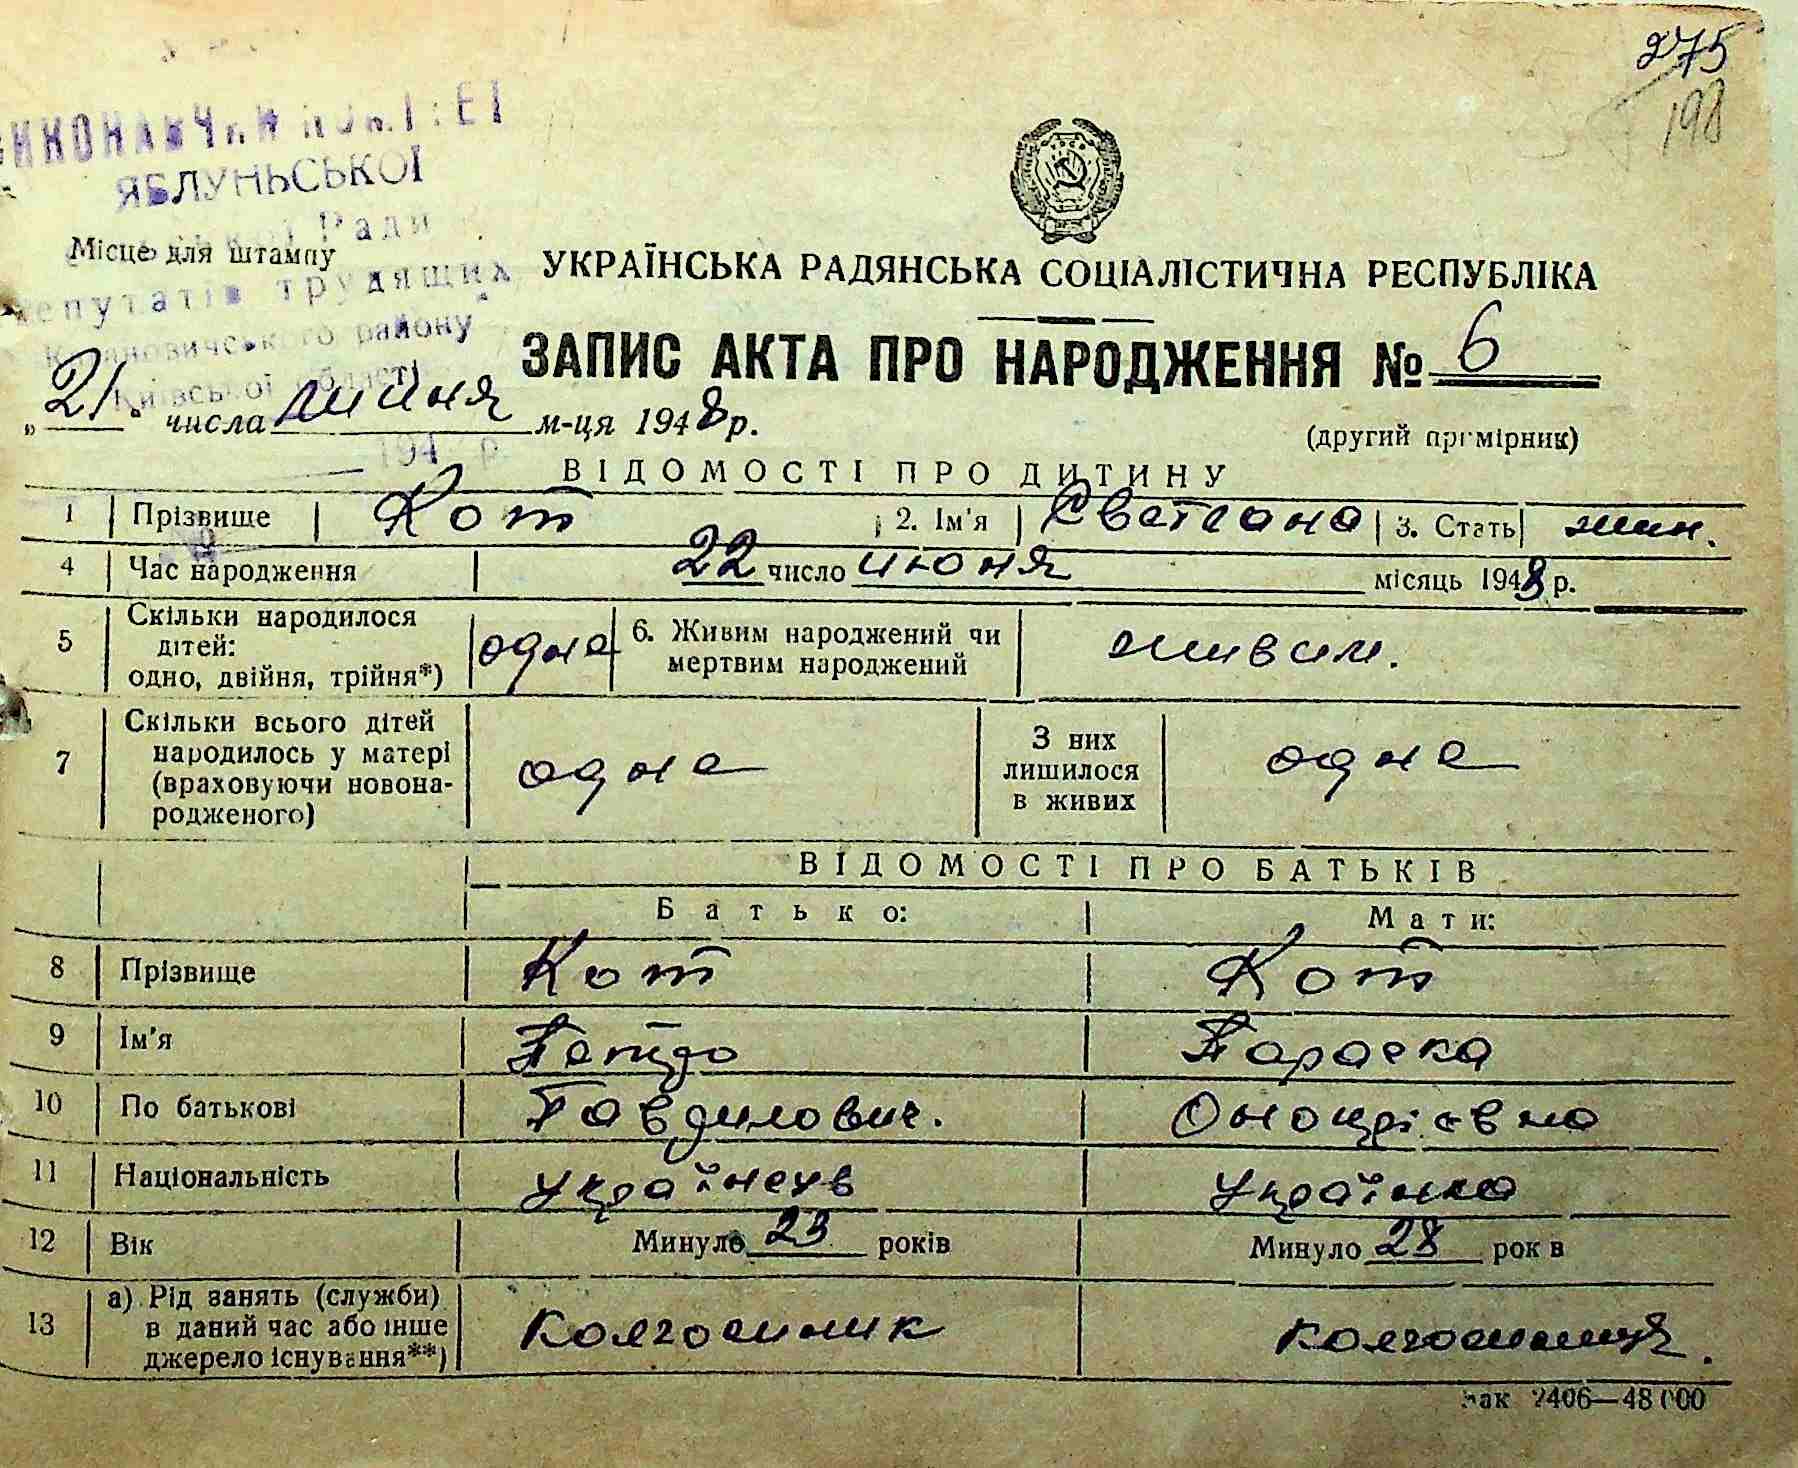 275
198
ВИКОНАВЧИЙ КОМІТЕТ
ЯБЛУНЬСЬКОЇ
Ради
Місце для штампу
депутатів трудящих
УКРАЇНСЬКА РАДЯНСЬКА СОЦІАЛІСТИЧНА РЕСПУБЛІКА
району
Київської області
ЗАПИС АКТА ПРО НАРОДЖЕННЯ № 6
„21“ числа липня м-ця 1948 р.
(другий примірник)
194 р.
ВІДОМОСТІ ПРО ДИТИНУ
1 Прізвище Кот 2. Ім'я Светлана 3. Стать жин.
4 Час народження 22 число июня місяць 1948 р.
5 Скільки народилося дітей: одно, двійня, трійня*) одна 6. Живим народжений чи мертвим народжений живим.
7 Скільки всього дітей народилось у матері (враховуючи новонародженого) одна З них лишилося в живих одна
ВІДОМОСТІ ПРО БАТЬКІВ
Батько: Мати:
8 Прізвище Кот Кот
9 Ім'я Петро Параска
10 По батькові Гаврилович. Оноприєвна
11 Національність українець українка
12 Вік Минуло 23 років Минуло 28 років
13 а) Рід занять (служби) в даний час або інше джерело існування**) Колгоспник колгоспниця.
Зак 2406—48000